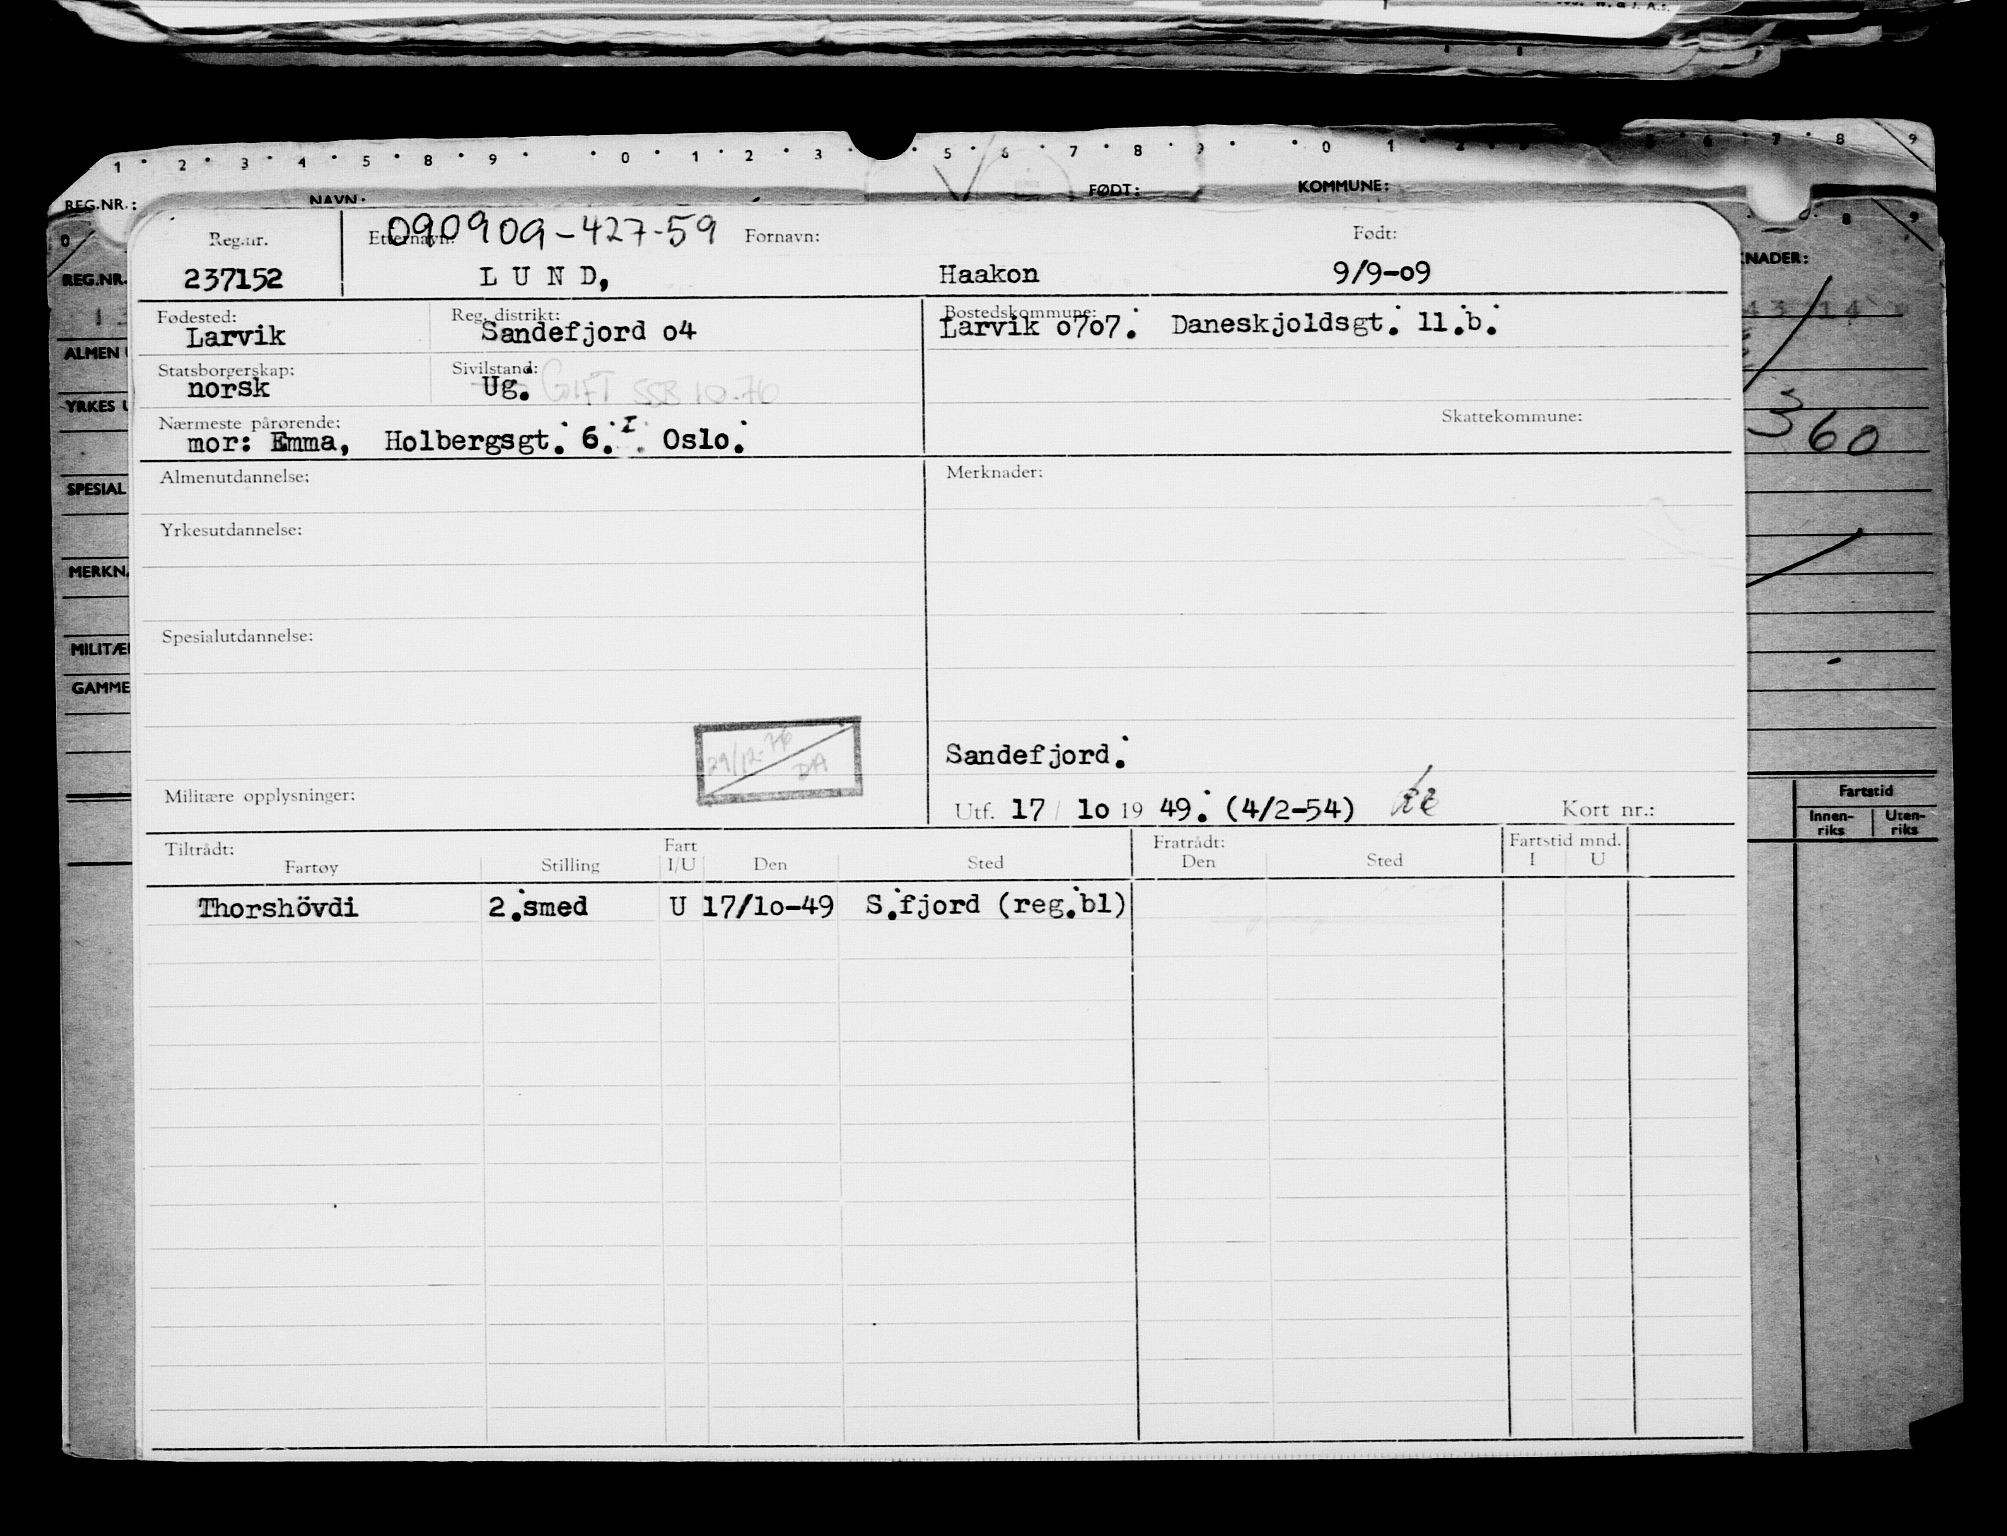 1 2 3 4 5 8 9 0 1 2 3 5 6 7 8 9 0 1 2 5 6 7 8 9
REG.NR.: NAVN: FØDT: KOMMUNE:
090909-427-59
Reg.nr. Etternavn: Fornavn: Født:
237152 L U N D, Haakon 9/9-09
Fødested: Reg. distrikt: Bostedskommune:
Larvik Sandefjord o4 Larvik o7o7. Daneskjoldsgt. 11.b.
Statsborgerskap: Sivilstand:
norsk Ug. GIFT SSB 10-76
Nærmeste pårørende: Skattekommune:
mor: Emma, Holbergsgt. 6. I. Oslo.
Almenutdannelse: Merknader:
Yrkesutdannelse:
Spesialutdannelse:
29/12-76
DA
Sandefjord.
Militære opplysninger: Utf. 17 / 1o 19 49. (4/2-54) Kort nr.:
Tiltrådt: Fart Fratrådt: Fartstid mnd.
Fartøy Stilling I/U Den Sted Den Sted I U
Thorshövdi 2.smed U 17/1o-49 S.fjord (reg.bl)
REG.NR.
ALMEN
YRKES
SPESIAL
MERKN
MILITÆ
GAMME
KNADER:
43 14
360
Fartstid
Innen-riks Uten-riks